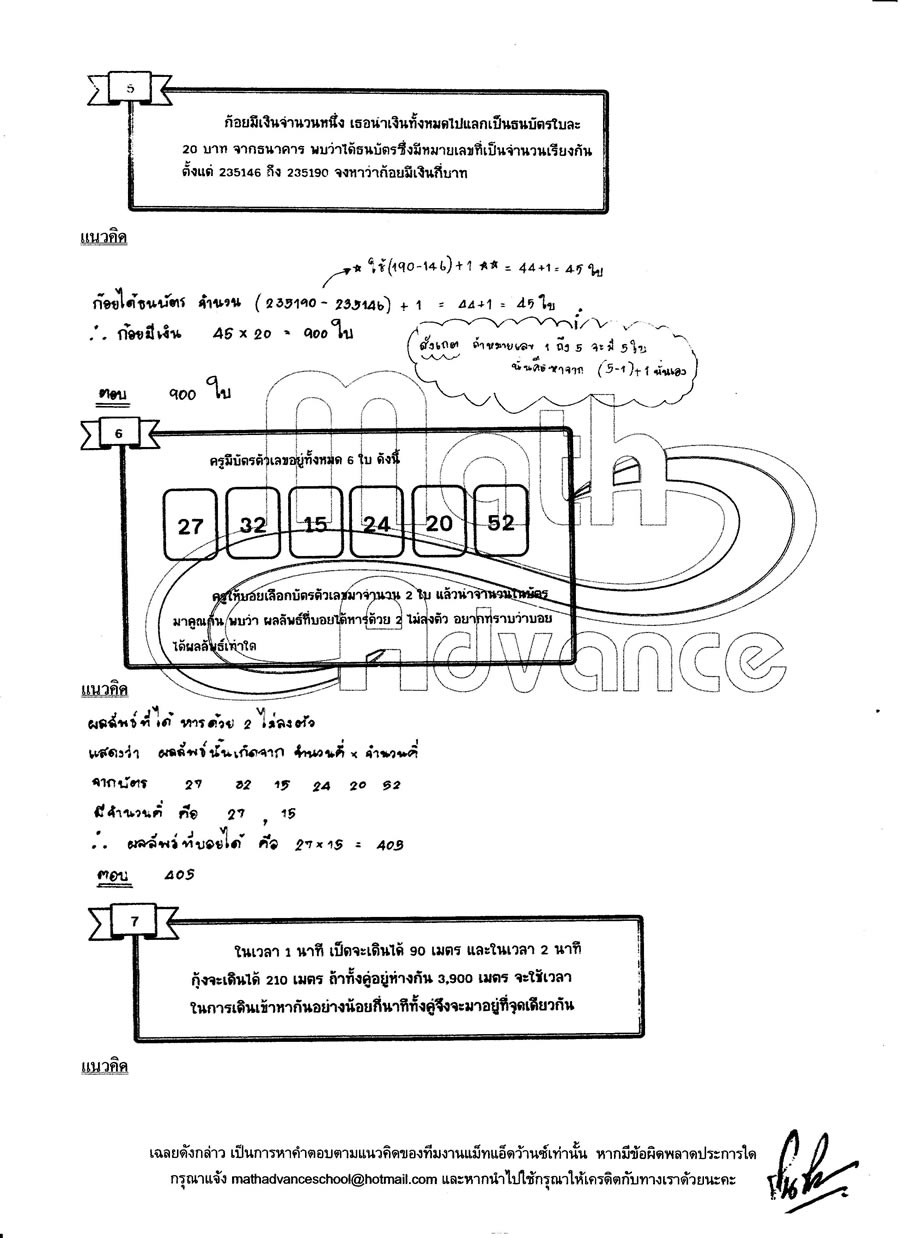 5
ก้อยมีเงินจำนวนหนึ่ง เธอนำเงินทั้งหมดไปแลกเป็นธนบัตรใบละ
20 บาท จากธนาคาร พบว่าได้ธนบัตรซึ่งมีหมายเลขที่เป็นจำนวนเรียงกัน
ตั้งแต่ 235146 ถึง 235190 จงหาว่าก้อยมีเงินกี่บาท
แนวคิด
** ใช้ (190-146)+1 ** = 44+1 = 45 ใบ
ก้อยได้ธนบัตร จำนวน (235190 - 235146) + 1 = 44+1 = 45 ใบ
∴ ก้อยมีเงิน 45 × 20 = 900 ใบ
สังเกต ถ้าหมายเลข 1 ถึง 5 จะมี 5 ใบ
นั่นคือหาจาก (5-1)+1 นั่นเอง
ตอบ 900 ใบ
6
ครูมีบัตรตัวเลขอยู่ทั้งหมด 6 ใบ ดังนี้
27 32 15 24 20 52
ครูให้บอยเลือกบัตรตัวเลขมาจำนวน 2 ใบ แล้วนำจำนวนในบัตร
มาคูณกัน พบว่า ผลลัพธ์ที่บอยได้หารด้วย 2 ไม่ลงตัว อยากทราบว่าบอย
ได้ผลลัพธ์เท่าใด
Math
Advance
แนวคิด
ผลลัพธ์ที่ได้ หารด้วย 2 ไม่ลงตัว
แสดงว่า ผลลัพธ์นั้นเกิดจาก จำนวนคี่ × จำนวนคี่
จากบัตร 27 32 15 24 20 52
มีจำนวนคี่ คือ 27 , 15
∴ ผลลัพธ์ที่บอยได้ คือ 27 × 15 = 405
ตอบ 405
7
ในเวลา 1 นาที เป็ดจะเดินได้ 90 เมตร และในเวลา 2 นาที
กุ้งจะเดินได้ 210 เมตร ถ้าทั้งคู่อยู่ห่างกัน 3,900 เมตร จะใช้เวลา
ในการเดินเข้าหากันอย่างน้อยกี่นาทีทั้งคู่จึงจะมาอยู่ที่จุดเดียวกัน
แนวคิด
เฉลยดังกล่าว เป็นการหาคำตอบตามแนวคิดของทีมงานแม็ทแอ็ดว้านซ์เท่านั้น หากมีข้อผิดพลาดประการใด
กรุณาแจ้ง mathadvanceschool@hotmail.com และหากนำไปใช้กรุณาให้เครดิตกับทางเราด้วยนะคะ